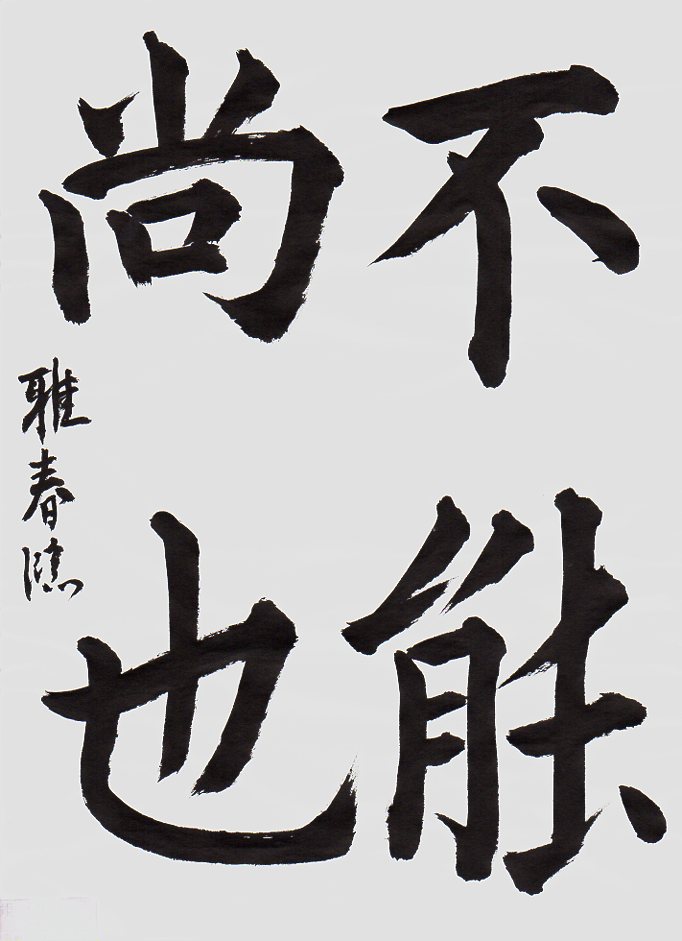 不能
尚也
雅春臨